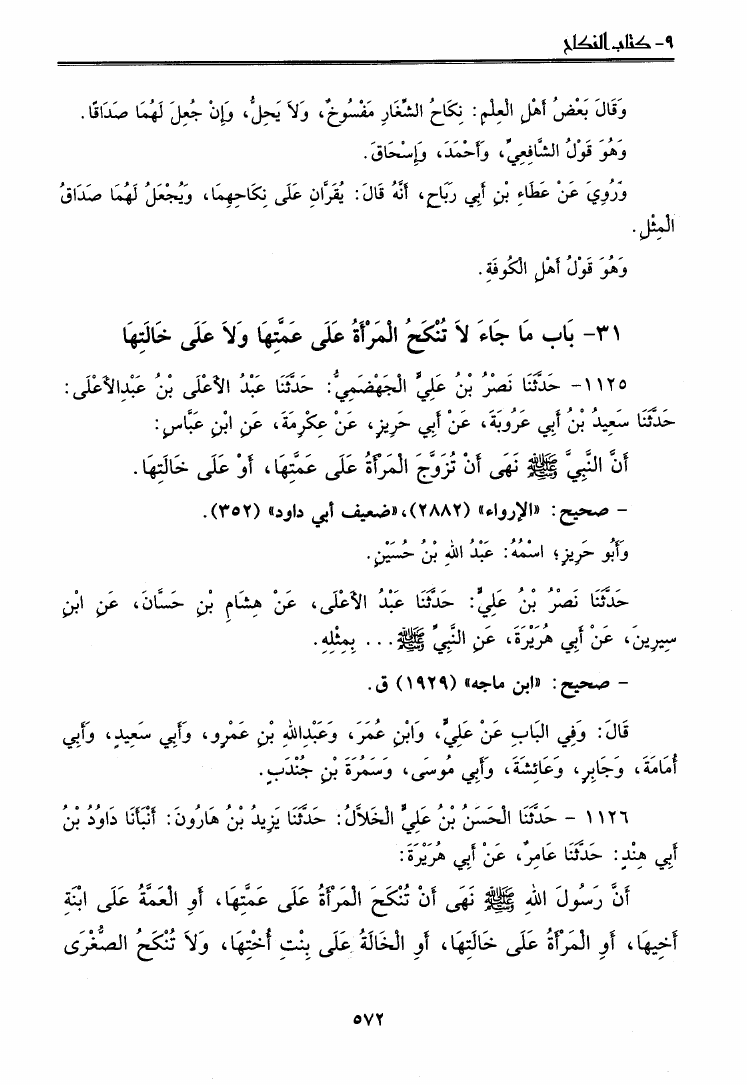 ٩- كتاب النكاح
وَقَالَ بَعْضُ أَهْلِ الْعِلْمِ: نِكَاحُ الشِّغَارِ مَفْسُوخٌ، وَلَا يَحِلُّ، وَإِنْ جُعِلَ لَهُمَا صَدَاقًا.
وَهُوَ قَوْلُ الشَّافِعِيِّ، وَأَحْمَدَ، وَإِسْحَاقَ.
وَرُوِيَ عَنْ عَطَاءِ بْنِ أَبِي رَبَاحٍ، أَنَّهُ قَالَ: يُقَرَّانِ عَلَى نِكَاحِهِمَا، وَيُجْعَلُ لَهُمَا صَدَاقُ
الْمِثْلِ.
وَهُوَ قَوْلُ أَهْلِ الْكُوفَةِ.
٣١- بَاب مَا جَاءَ لَا تُنْكَحُ الْمَرْأَةُ عَلَى عَمَّتِهَا وَلَا عَلَى خَالَتِهَا
١١٢٥- حَدَّثَنَا نَصْرُ بْنُ عَلِيٍّ الْجَهْضَمِيُّ: حَدَّثَنَا عَبْدُ الأَعْلَى بْنُ عَبْدِالأَعْلَى:
حَدَّثَنَا سَعِيدُ بْنُ أَبِي عَرُوبَةَ، عَنْ أَبِي حَرِيزٍ، عَنْ عِكْرِمَةَ، عَنِ ابْنِ عَبَّاسٍ:
أَنَّ النَّبِيَّ ﷺ نَهَى أَنْ تُزَوَّجَ الْمَرْأَةُ عَلَى عَمَّتِهَا، أَوْ عَلَى خَالَتِهَا.
- صحيح: «الإرواء» (٢٨٨٢)، «ضعيف أبي داود» (٣٥٢).
وَأَبُو حَرِيزٍ؛ اسْمُهُ: عَبْدُ اللهِ بْنُ حُسَيْنٍ.
حَدَّثَنَا نَصْرُ بْنُ عَلِيٍّ: حَدَّثَنَا عَبْدُ الأَعْلَى، عَنْ هِشَامِ بْنِ حَسَّانَ، عَنِ ابْنِ
سِيرِينَ، عَنْ أَبِي هُرَيْرَةَ، عَنِ النَّبِيِّ ﷺ... بِمِثْلِهِ.
- صحيح: «ابن ماجه» (١٩٢٩) ق.
قَالَ: وَفِي الْبَابِ عَنْ عَلِيٍّ، وَابْنِ عُمَرَ، وَعَبْدِاللهِ بْنِ عَمْرٍو، وَأَبِي سَعِيدٍ، وَأَبِي
أُمَامَةَ، وَجَابِرٍ، وَعَائِشَةَ، وَأَبِي مُوسَى، وَسَمُرَةَ بْنِ جُنْدَبٍ.
١١٢٦ - حَدَّثَنَا الْحَسَنُ بْنُ عَلِيٍّ الْخَلَّالُ: حَدَّثَنَا يَزِيدُ بْنُ هَارُونَ: أَنْبَأَنَا دَاوُدُ بْنُ
أَبِي هِنْدٍ: حَدَّثَنَا عَامِرٌ، عَنْ أَبِي هُرَيْرَةَ:
أَنَّ رَسُولَ اللهِ ﷺ نَهَى أَنْ تُنْكَحَ الْمَرْأَةُ عَلَى عَمَّتِهَا، أَوِ الْعَمَّةُ عَلَى ابْنَةِ
أَخِيهَا، أَوِ الْمَرْأَةُ عَلَى خَالَتِهَا، أَوِ الْخَالَةُ عَلَى بِنْتِ أُخْتِهَا، وَلَا تُنْكَحُ الصُّغْرَى
٥٧٢